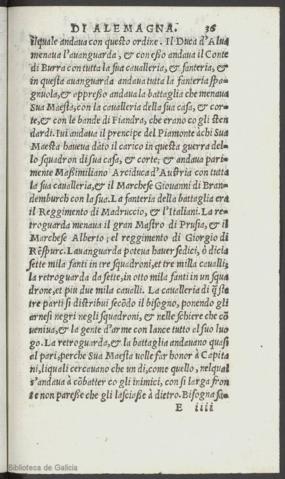 DI ALEMAGNA. 36
ilquale andaua con questo ordine. Il Duca d'Alua
menaua l'auanguarda, & con esso andaua il Conte
di Burra con tutta la sua caualleria, & fanteria, &
in questa auanguarda andaua tutta la fanteria spa-
gnuola, & appresso andaua la battaglia che menaua
Sua Maesta, con la caualleria della sua casa, & cor-
te, & con le bande di Fiandra, che erano co gli sten
dardi. Iui andaua il prencipe del Piamonte à chi Sua
Maestà haueua dàto il carico in questa guerra del-
lo squadron di sua casa, & corte; & andaua pari-
mente Maßimiliano Arciduca d'Austria con tutta
la sua caualleria, & il Marchese Giouanni di Bran-
demburch con la sua. La fanteria della battaglia era
il Reggimento di Madruccio, & l'Italiani. La re-
troguarda menaua il gran Mastro di Prusia, & il
Marchese Alberto; el reggimento di Giorgio di
Rēspurc. Lauanguarda poteua hauer sedici, ò dicia
sette mila fanti in tre squadroni, et tre mila caualli;
la retroguarda da sette, in otto mila fanti in un squa
drone, et piu due mila caualli. La cauelleria di q̃ste
tre parti si distribuì secōdo il bisogno, ponendo gli
arnesi negri negli squadroni, & nelle schiere che cō
ueniua, & la gente d'arme con lance tutto el suo luo
go. La retroguarda, & la battaglia andauano quasi
al pari, perche Sua Maestà uolle far honor à Capita
ni, liquali cercauano che un dì, come quello, nelqual
s'andaua à cōbatter co gli inimici, con sì larga fron
te non pareße che gli lasciaße à dietro. Bisogna sa-
E iiii
Biblioteca de Galicia